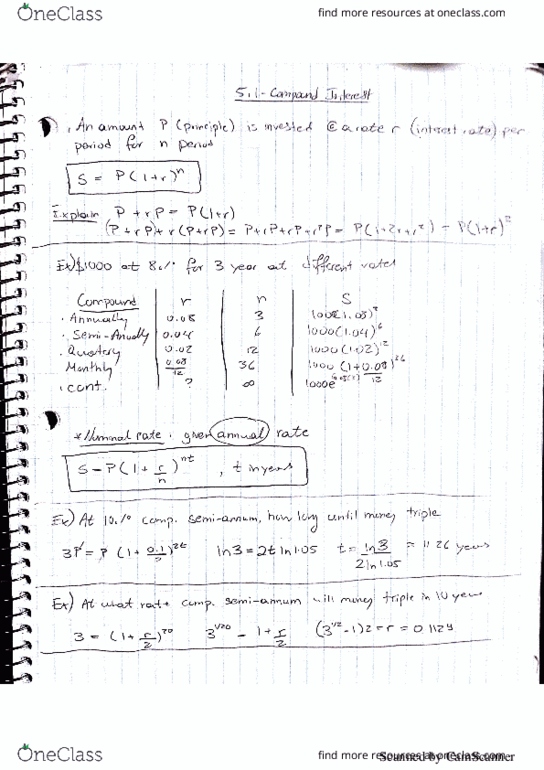 OneClass
find more resources at oneclass.com
5.1 - Compound Interest
. An amount P (principle) is invested @ a rate r (interest rate) per
period for n period
S = P(1+r)^n
Explain P + rP = P(1+r)
(P + rP) + r(P+rP) = P+rP+rP+r²P = P(1+2r+r²) - P(1+r)²
Ex) $1000 at 8% for 3 year at different rates
Compound r n S
. Annually 0.08 3 1000(1.08)³
. Semi-Anually 0.04 6 1000(1.04)^6
. Quarterly 0.02 12 1000(1.02)^12
Monthly 0.08/12 36 1000 (1+0.08/12)^36
. cont. ? ∞
*Nominal rate. given annual rate
S - P(1 + r/n)^nt , t in years
Ex) At 10% comp. semi-annum, how long until money triple
3P = P (1 + 0.1/2)^2t ln3 = 2t ln 1.05 t = ln3/2ln1.05 = 11.26 years
Ex) At what rate comp. semi-annum will money triple in 10 years
3 = (1+r/2)^20 3^1/20 - 1+r/2 (3^1/2-1)2=r=0.1129
OneClass
find more resources at oneclass.com
Scanned by CamScanner